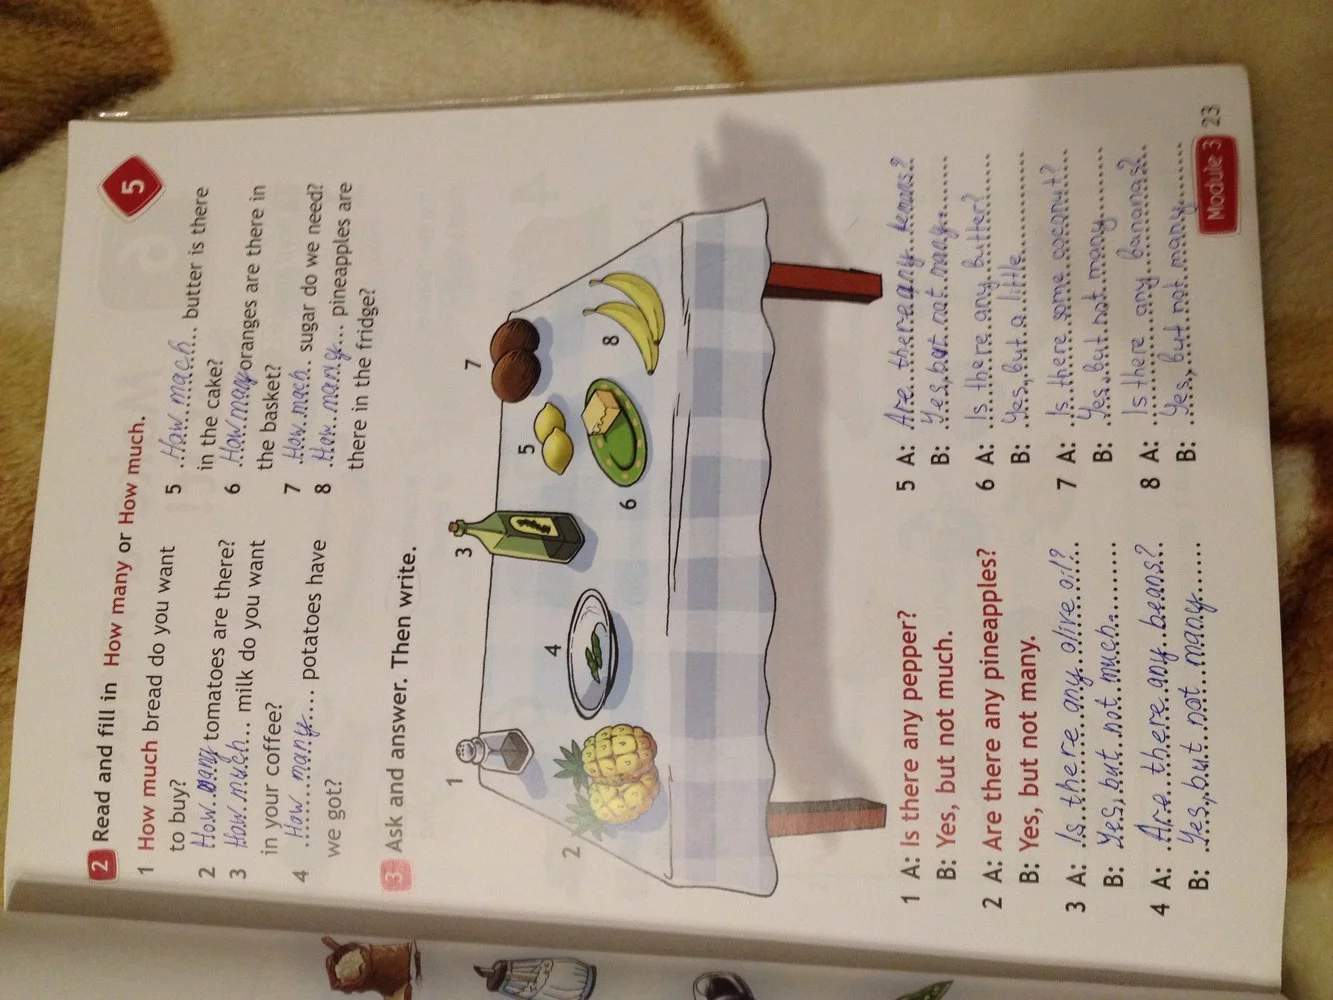 5
2 Read and fill in How many or How much.
1 How much bread do you want
to buy?
2 How many tomatoes are there?
3 How much milk do you want
in your coffee?
4 How many potatoes have
we got?
5 How mach butter is there
in the cake?
6 How many oranges are there in
the basket?
7 How mach sugar do we need?
8 How many pineapples are
there in the fridge?
3 Ask and answer. Then write.
1
2
3
4
5
6
7
8
1 A: Is there any pepper?
B: Yes, but not much.
2 A: Are there any pineapples?
B: Yes, but not many.
3 A: Is there any olive oil?
B: Yes, but not much.
4 A: Are there any beans?
B: Yes, but not many.
5 A: Are there any lemons?
B: Yes, but not many.
6 A: Is there any butter?
B: Yes, but a little
7 A: Is there some coconut?
B: Yes, but not many
8 A: Is there any bananas?
B: Yes, but not many
Module 3 23